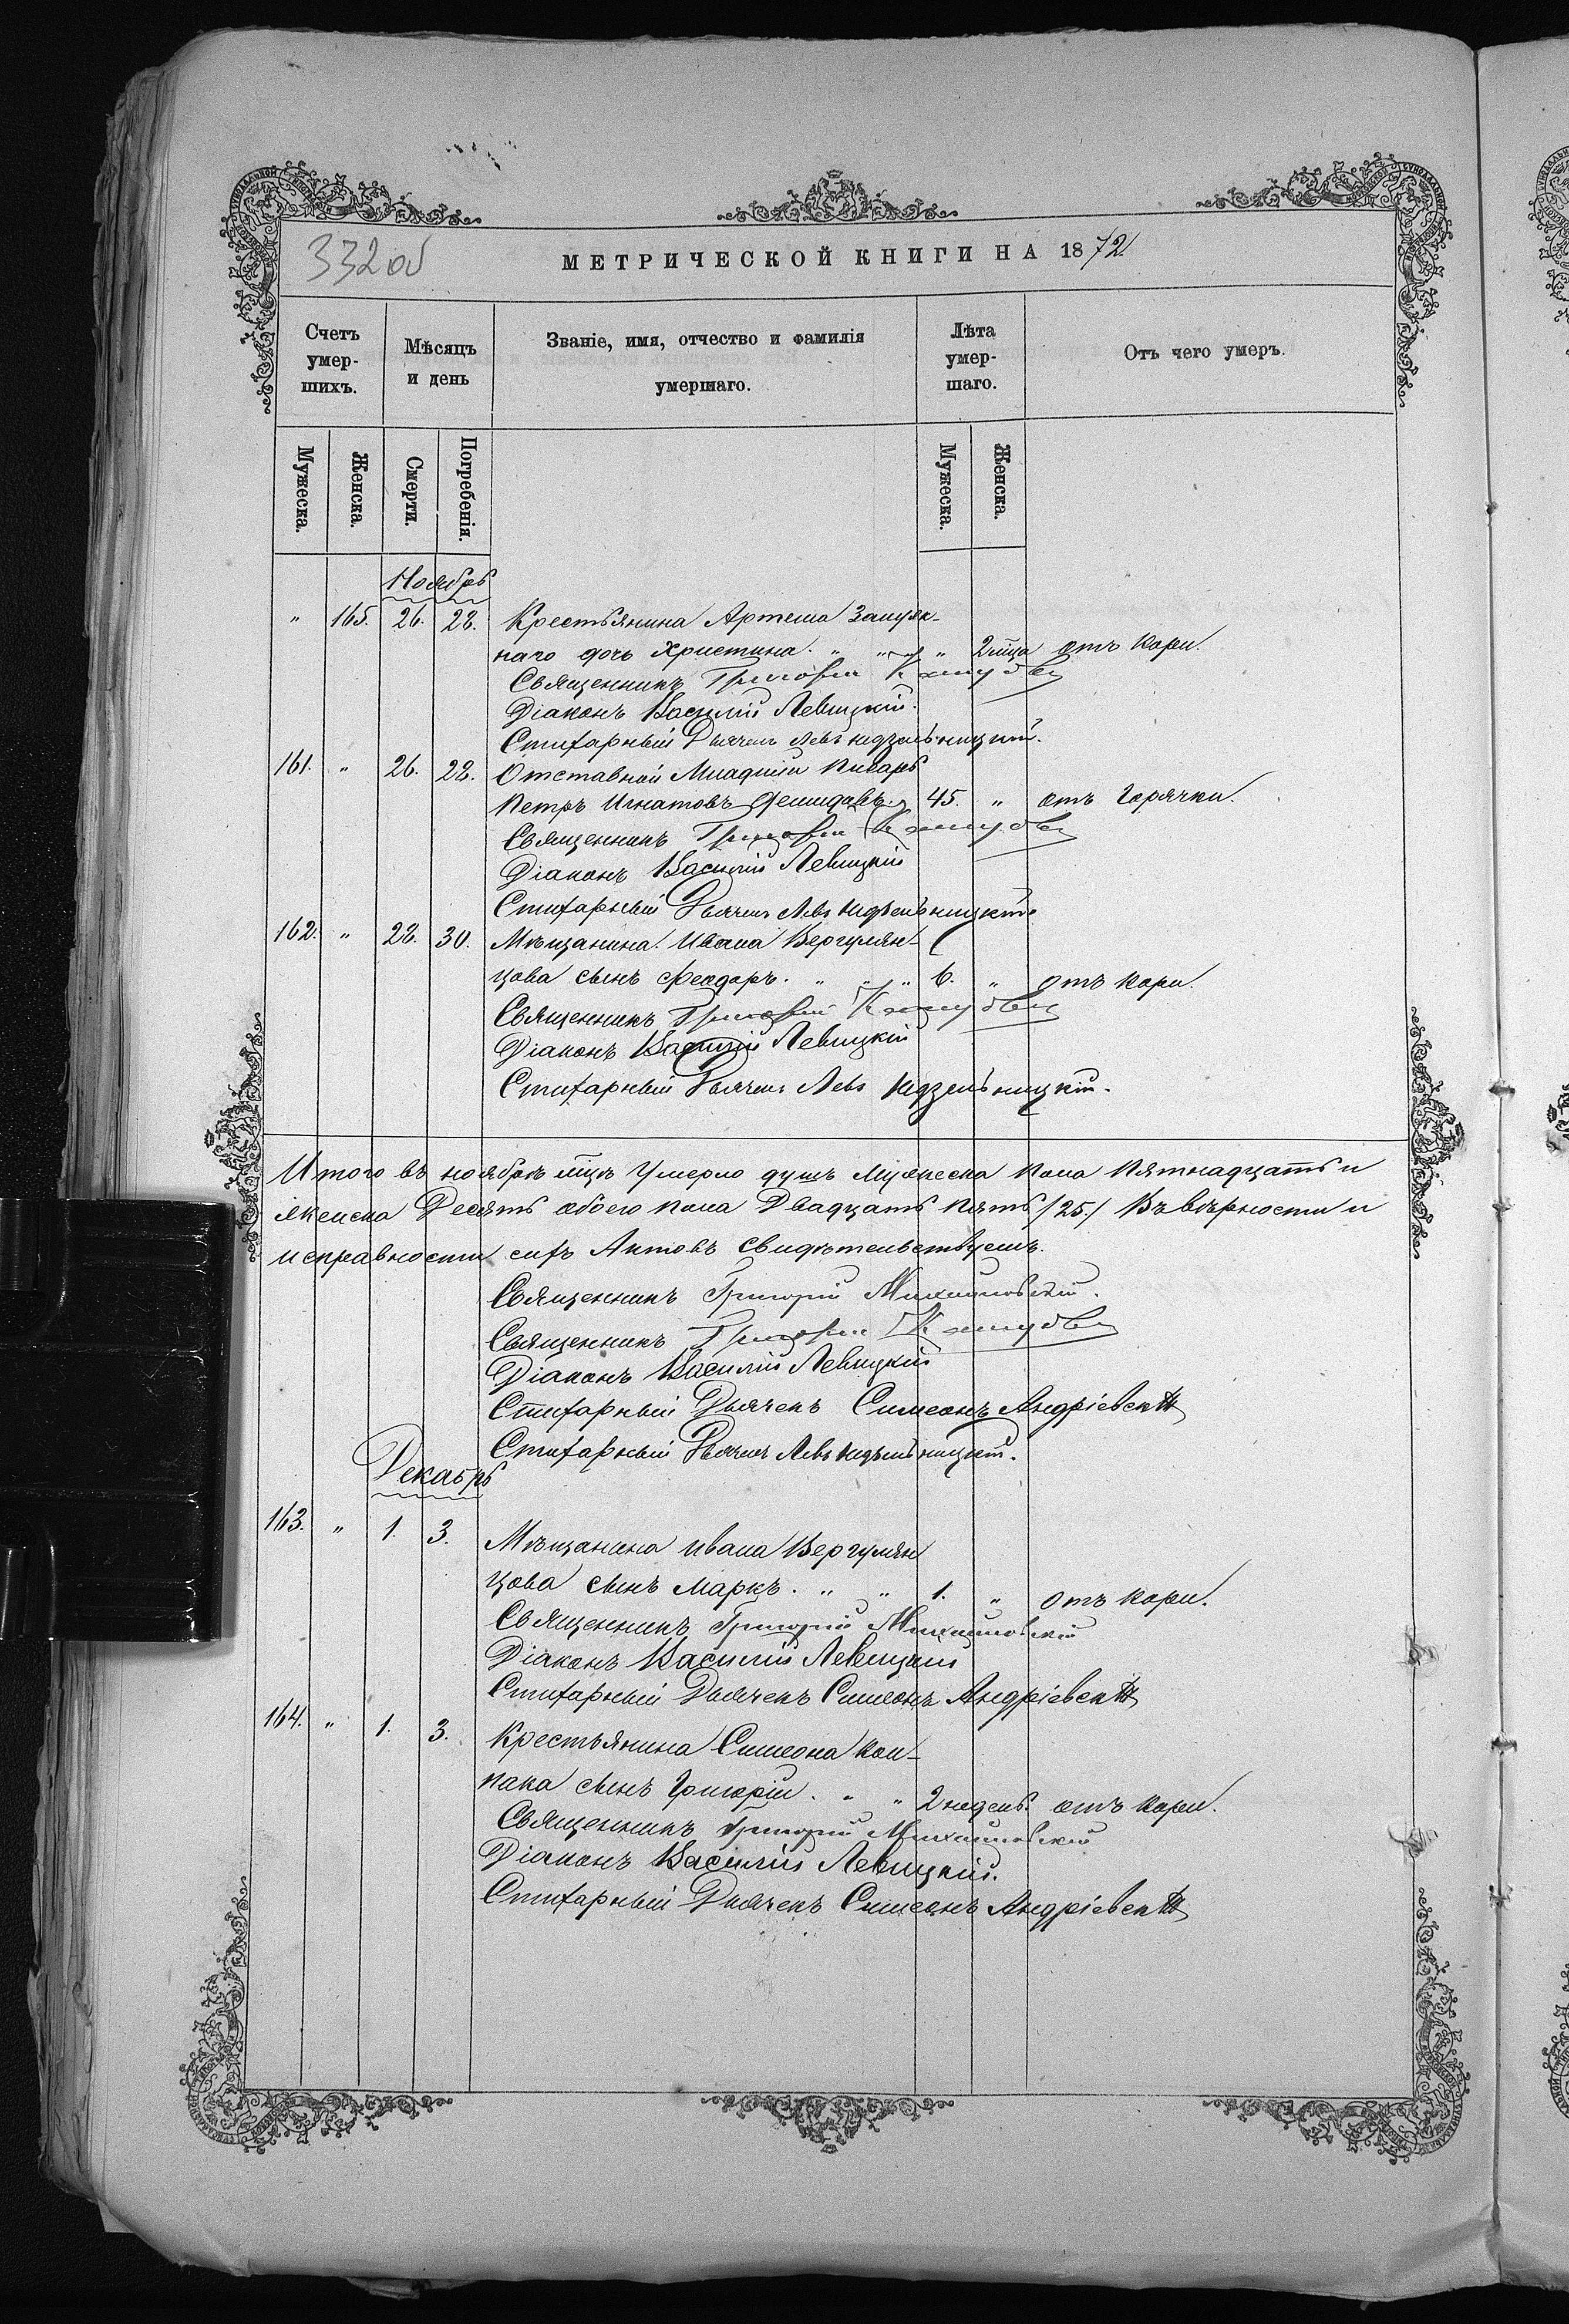 332 об
МЕТРИЧЕСКОЙ КНИГИ НА 1872
Счетъ умер-шихъ.
Мѣсяцъ и день
Званіе, имя, отчество и фамилія умершаго.
Лѣта умер-шаго.
Отъ чего умеръ.
Мужеска.
Женска.
Смерти.
Погребенія.
Мужеска.
Женска.
Ноябрь
" 165. 26. 28. Крестьянина Артема
наго дочь Христина. " " " 2 мца отъ кори.
Священникъ Григорій
Діаконъ Василій Левицкій.
Стихарный Дьячек Левъ Недзельницкій.
161. " 26. 28. Отставной Младшій Писарь
Петръ Игнатовъ Демидовъ. 45. " отъ Горячки.
Священникъ Григорій
Діаконъ Василій Левицкій
Стихарный Дьячек Левъ Недзельницкій.
162. " 28. 30. Мѣщанина Ивана Вергулян-
цова сынъ Феодоръ. " " " 6. " отъ кори.
Священникъ Григорій
Діаконъ Василій Левицкій
Стихарный Дьячек Левъ Недзельницкій.
Итого въ ноябрѣ мцѣ Умерло душъ Мужеска пола Пятнадцать и
женска Десять обоего пола Двадцать пять /25./ Въ вѣрности и
исправности сихъ Актовъ свидѣтельствуемъ.
Священникъ Григорій Михайловскій.
Священникъ Григорій
Діаконъ Василій Левицкій
Стихарный Дьячекъ Симеонъ Андріевскій
Стихарный Дьячек Левъ Недзельницкій.
Декабрь
163. " 1. 3. Мѣщанина Ивана Вергулян
цова сынъ Маркъ. " " 1. " отъ кори.
Священникъ Григорій Михайловскій
Діаконъ Василій Левицкій
Стихарный Дьячекъ Симеонъ Андріевскій
164. " 1. 3. Крестьянина Симеона Кол-
пака сынъ Григорій. " " 2 недель. отъ кори.
Священникъ Григорій Михайловскій
Діаконъ Василій Левицкій.
Стихарный Дьячекъ Симеонъ Андріевскій